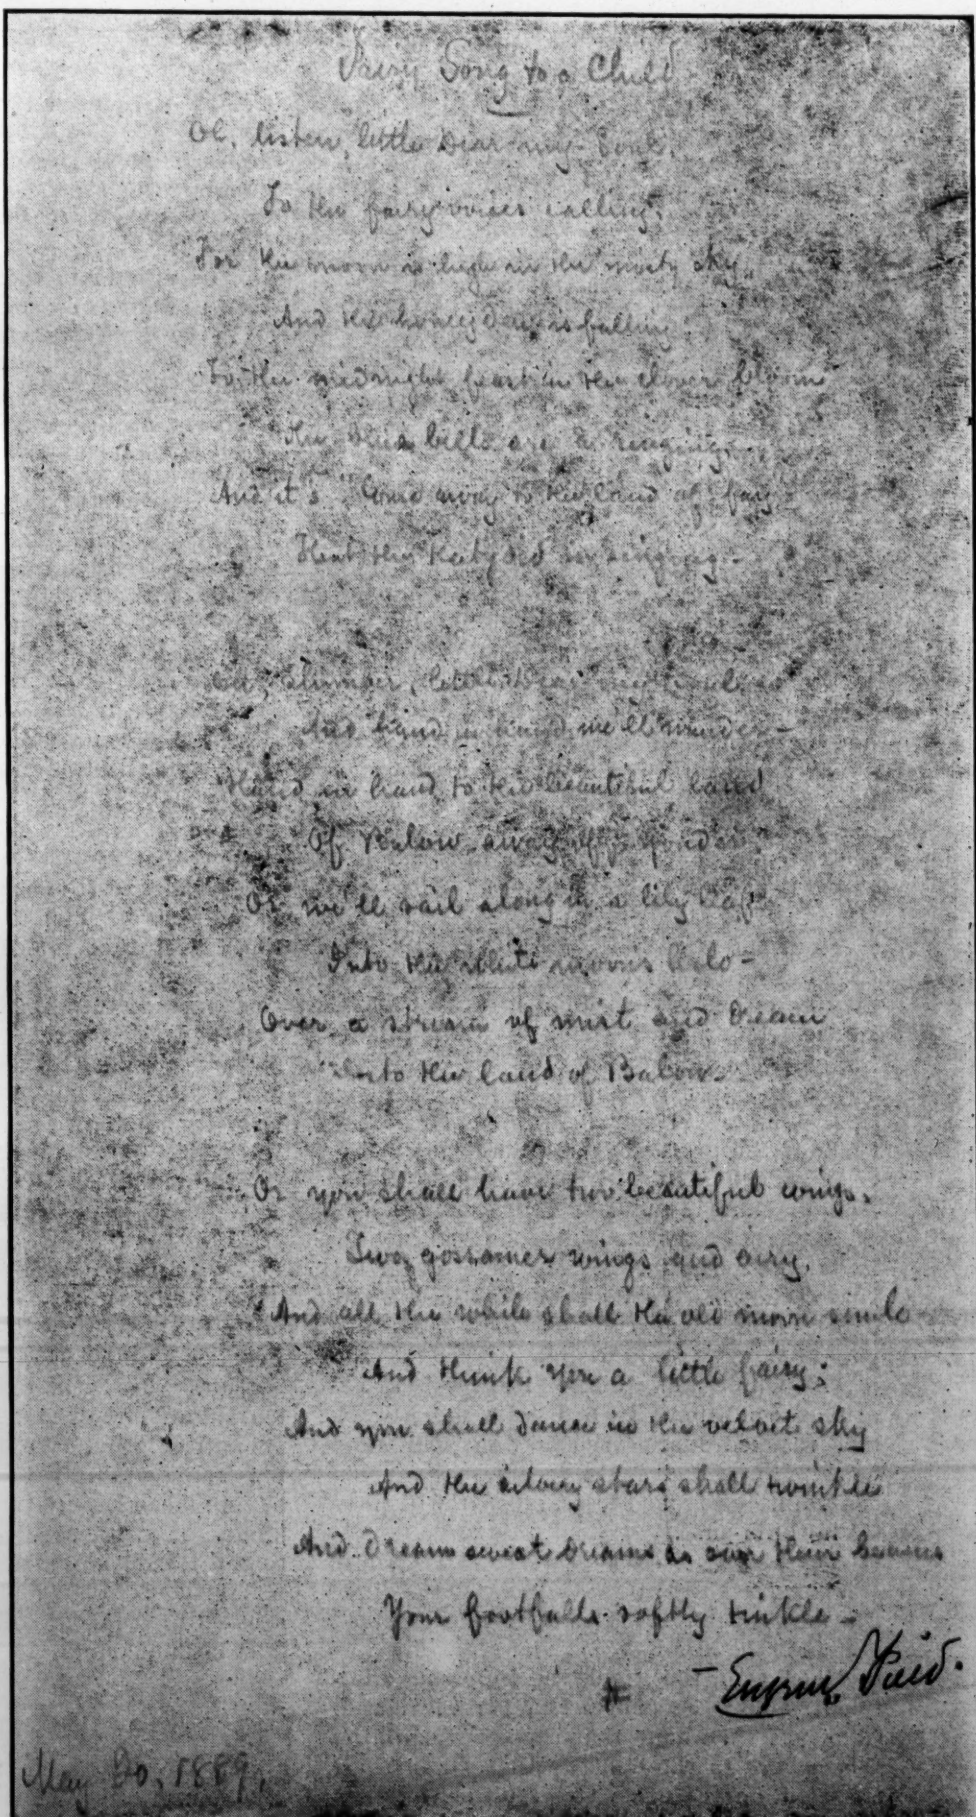 Fairy Song to a Child
Oh, listen, little Dear-my-Soul,
To the fairy voices calling,
For the moon is high in the misty sky,
And the honey dew is falling;
To the midnight feast in the clover bloom
The blue bells are a-ringing,
And it's "Come away to the land of fay"
That the Katydid is singing.
Oh, slumber, little Dear-my-Soul,
And hand in hand we'll wander –
Hand in hand to the beautiful land
Of Balow, away off yonder;
Or we'll sail along in a lily leaf
Into the white moon's halo –
Over a stream of mist and dream
Into the land of Balow.
Or you shall have two beautiful wings,
Two gossamer wings and airy,
And all the while shall the old moon smile
And think you a little fairy;
And you shall dance in the velvet sky
And the silvery stars shall twinkle
And dream sweet dreams as over their beams
Your footfalls softly tinkle –
– Eugene Field.
May 20, 1889.